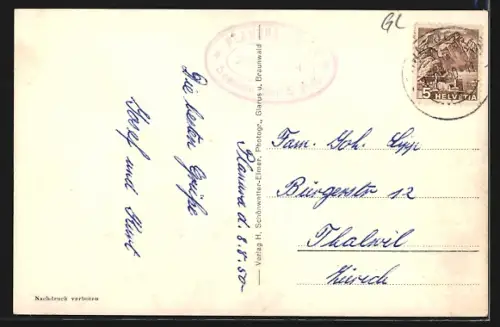 GL
5 HELVETIA
Planura d. 8.8.50-
Die besten Grüße
Josef und Kurt
Verlag H. Schönwetter-Elmer, Photogr., Glarus u. Braunwald
Fam. Joh. Lipp
Bürgerstr 12
Thalwil
Zürich
Nachdruck verboten